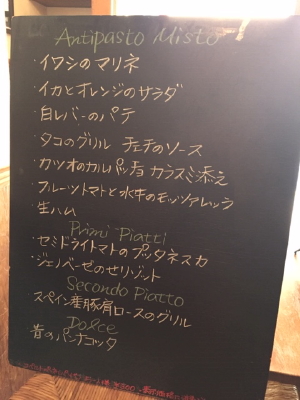 Antipasto Misto
・イワシのマリネ
・イカとオレンジのサラダ
・白レバーのパテ
・タコのグリル チェチのソース
・カツオのカルパッチョ カラスミ添え
・フルーツトマトと水牛のモッツァレッラ
・生ハム
Primi Piatti
・セミドライトマトのプッタネスカ
・ジェノベーゼのせリゾット
Secondo Piatto
スペイン産豚肩ロースのグリル
Dolce
・苺のパンナコッタ